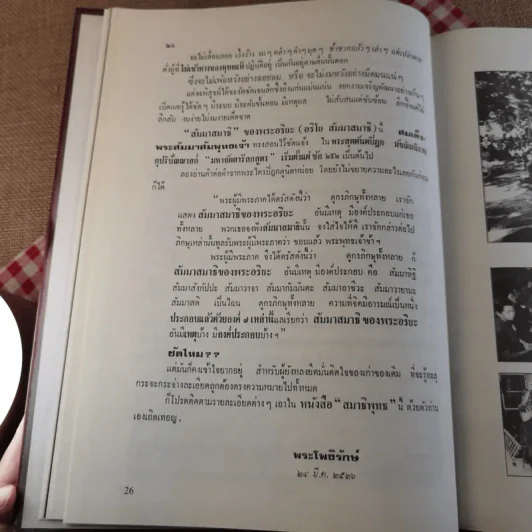 ๒๖
จะไม่เลื่อนลอย เว้งว้าง
ค้าผู้ที่ไม่เข้าทางของพุทธแท้ ปฏิบัติอยู่ เป็นกันอยู่ตามตื้นนั้นดอก
ซึ่งจะไม่เพ้อหวังอย่างลอยลม หรือ จะไม่งมหวังอย่างมืดมนแน่ๆ
แต่จะพิสูจน์ได้
มีเหตุผล ไม่สับสนแต่ซับซ้อน
ลึกลับ งมง่ายไม่งมงายเด็ดขาด
“สัมมาสมาธิ” ของพระอริยะ (อริโย สัมมาสมาธิ) นี้ สมเด็จ-
พระสัมมาสัมพุทธเจ้า ทรงสอนไว้ชัดแจ้ง ใน พระสุตตันตปิฎก
อุปริปัณณาสก์ “มหาจัตตารีสกสูตร” เริ่มตั้งแต่ ข้อ ๒๕๒ เป็นต้นไป
ลองอ่านคำต่อคำจากพระไตรปิฎกดูนิดหน่อย โดยยังไม่ขยายความอะไรเลยกันก่อน
ก็ได้
“พระผู้มีพระภาคได้ตรัสดังนี้ว่า ดูกรภิกษุทั้งหลาย เราจัก
แสดง สัมมาสมาธิของพระอริยะ อันมีเหตุ มีองค์ประกอบแก่เธอ
ทั้งหลาย พวกเธอจงฟังสัมมาสมาธินั้น จงใส่ใจให้ดี เราจักกล่าวต่อไป
ภิกษุเหล่านั้นทูลรับพระผู้มีพระภาคว่า ชอบแล้ว พระพุทธเจ้าข้าฯ
พระผู้มีพระภาค จึงได้ตรัสดังนี้ว่า ดูกรภิกษุทั้งหลาย ก็
สัมมาสมาธิของพระอริยะ อันมีเหตุ มีองค์ประกอบ คือ สัมมาทิฐิ
สัมมาสังกัปปะ สัมมาวาจา สัมมากัมมันตะ สัมมาอาชีวะ สัมมาวายามะ
สัมมาสติ เป็นไฉน ดูกรภิกษุทั้งหลาย ความที่จิตมีอารมณ์เป็นหนึ่ง
ประกอบแล้วด้วยองค์ ๗ เหล่านี้แลเรียกว่า สัมมาสมาธิ ของพระอริยะ
อันมีเหตุบ้าง มีองค์ประกอบบ้างฯ”
ชัดไหม??
แต่มันก็คงเข้าใจยากอยู่ สำหรับผู้ยังหลงยึดมั่นติดใจของเก่าของเดิม ที่จะรู้ทะลุ
กระจะกระจ่างละเอียดถูกต้องตรงความหมายไปทั้งหมด
ก็โปรดติดตามรายละเอียดต่างๆ เอาใน หนังสือ “สมาธิพุทธ” นี้ ด้วยตัวท่าน
เองเถิดเทอญ.
พระโพธิรักษ์
๒๔ มี.ค. ๒๕๒๖
26